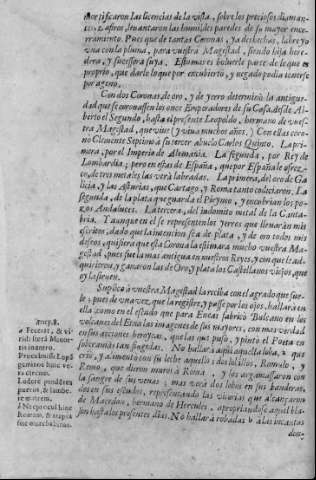 mortificaron las licencias de la vista, sobre los preciosos diaman-
tes, aforros, leuantaron las humildes paredes de su mayor ence-
rramiento. Pues que de tantas Coronas, ya deshechas, labre yo
vna con la pluma, para vuestra Magestad, siendo hija here-
dera, y sucessora suya. Esto mas es boluerle parte de lo que es
proprio, que darle lo que por encubierto, y negado podia tenerse
por ageno.
Con dos Coronas de oro, y de yerro determinò la antigue-
dad que se coronassen los once Emperadores de su Casa, desde Al-
berto el Segundo, hasta el presente Leopoldo, hermano de vues-
tra Magestad, que viue (y viua muchos años.) Con ellas coro-
nò Clemente Septimo a su tercer abuelo Carlos Quinto. La pri-
mera, por el Imperio de Alemania. La segunda, por Rey de
Lombardia; pero en estas de España, que por España le ofrez-
co, de tres metales las verà labradas. La primera, del oro de Ga-
licia, y las Asturias, que Cartago, y Roma tanto codiciaron. La
segunda, de la plata que guarda el Pirineo, y encubrian los po-
zos Andaluzes. La tercera, del indomito metal de la Canta-
bria. Y aunque en el se representen los yerros que llenaràn mis
escritos, dado que la intencion sea de plata, y de oro todos mis
deseos, quisiera que esta Corona la estimara mucho vuestra Ma-
gestad, pues fue la mas antigua en nuestros Reyes, y con que le ad-
quirieron, y ganaron las de Oro, y plata los Castellanos viejos, que
oy la siruen.
Suplico à vuestra Magestad la reciba con el agrado que sue-
le; pues de vna vez, que la registre, y passe por los ojos, hallarà en
ella como en el escudo que para Eneas fabricò Bulcano en los
volcanes del Etna las imagenes de sus mayores, con mas verdad
en sus acciones heroycas, que las que puso, y pinta el Poeta en
somburias tan fingidas. No hallarà aqui aquella loba, que
criò, y alimentò con su leche aquellos dos lobillos, Romulo, y
Remo, que dieron muros à Roma, y los argamassaron con
la sangre de sus venas; mas verà dos lobos en sus banderas,
y en sus escudos, representando las vitorias que alcançaron
de Macedon, hermano de Hercules, apropriandose aquel bla-
son hasta los presentes dias. No hallarà robadas à las incautas
don-
a Fecerat, & vi-
ridi fœtã Mauor-
tis in antro.
Procubuisse Lupã
geminos huic vbe-
ra circum.
Ludere pendêtes
pueros, & lambe-
re matrem.
b Nec procul hinc
Romam, & raptas
sine more Sabinas.